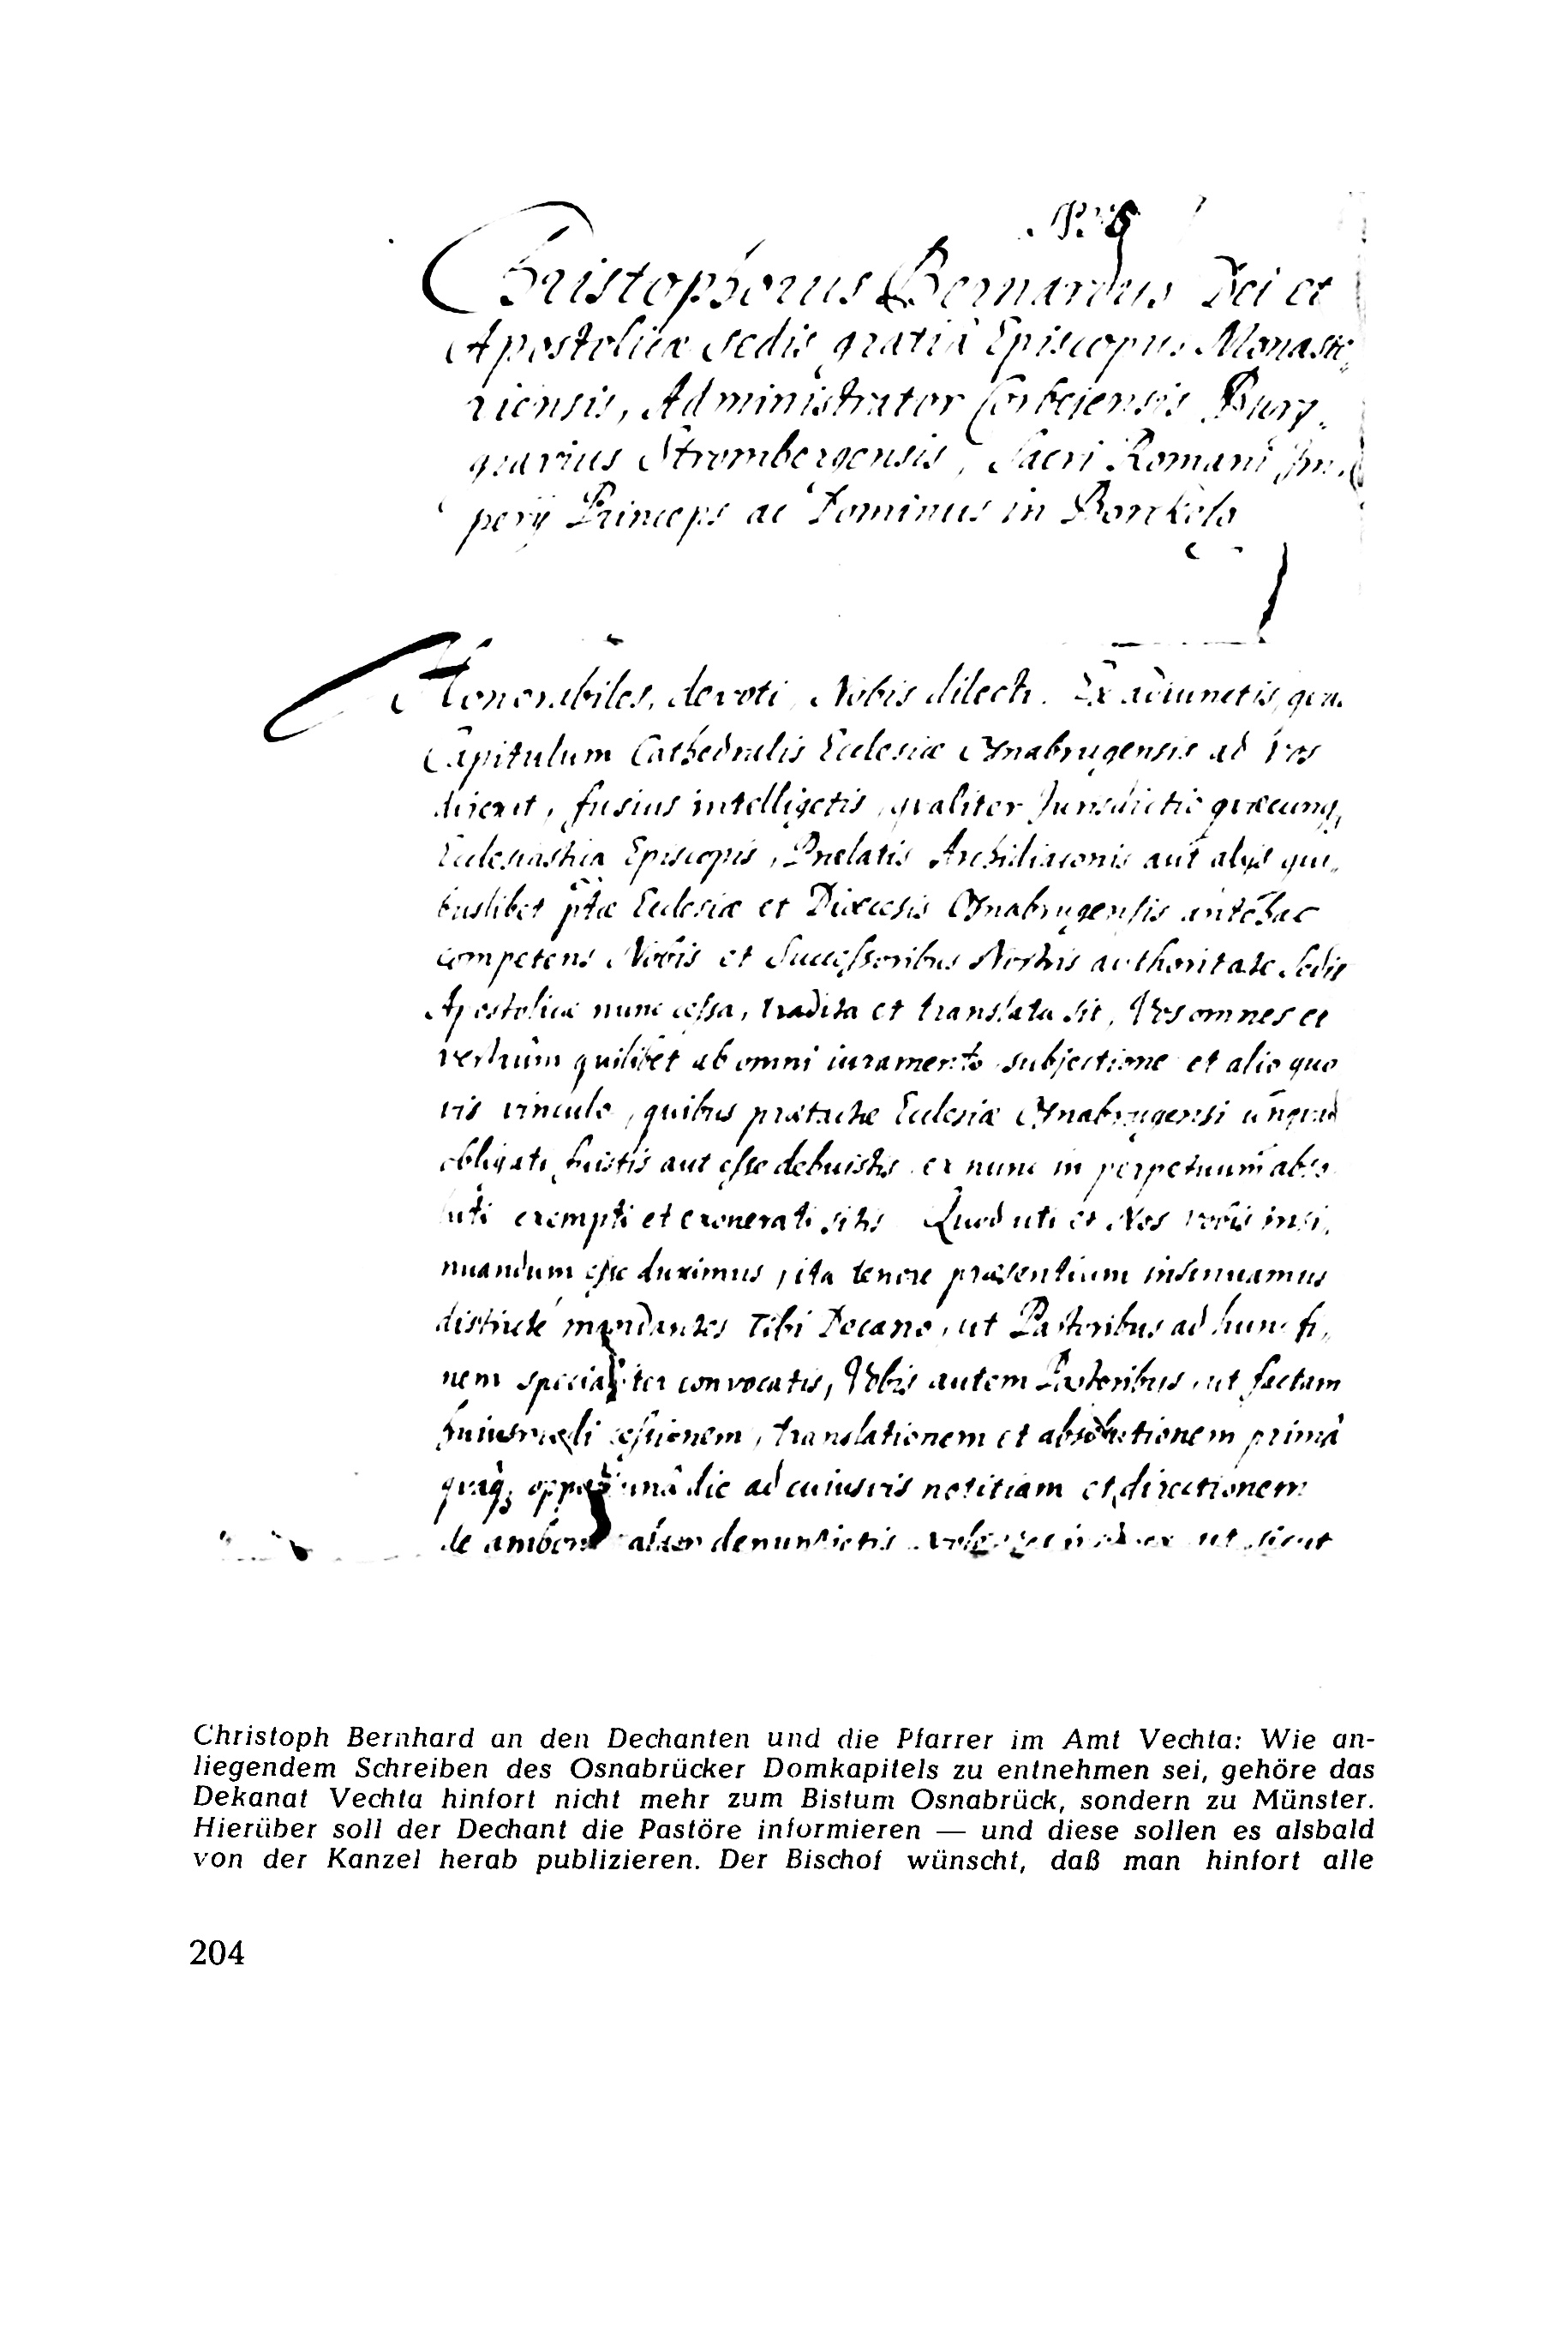 Christophorus Bernardus Dei et
Apostolicæ Sedis gratiâ Episcopus Monaste,
riensis, Administrator Corbeiensis Burg,
gravius Strombergensis, Sacri Romani Im,
perij Princeps ac Dominus in Borckelo
Honorabiles, devoti Nobis dilecti. Ex adiunctis, quæ
Capitulum Cathedralis Ecclesiæ Osnabrugensis ad vos
direxit, fusius intelligetis, qualiter Jurisdictio quæcunq,
Ecclesiastica Episcopis, Prælatis Archidiaconis aut alijs qui,
buslibet ptæ Ecclesiæ et Diœcesis Osnabrugensis antehac
competens Nobis et Successoribus Nostris authoritate Sedis
Apostolicæ nunc cessa, tradita et translata sit, Vos omnes et
vestrûm quilibet ab omni iuramento subjectione et alio quo
vis vinculo, quibus præfatæ Ecclesiæ Osnabrugensi unquam
obligati fuistis aut esse debuistis ex nunc in perpetuum abso
luti exempti et exonerati sitis Quod uti et Nos vobis insi,
nuandum esse duximus, ita tenore præsentium insinuamus
districtè mandantes Tibi Decano, ut Pastoribus ad hunc fi,
nem specialiter convocatis, Vobis autem Pastoribus, ut factam
huiusmodi cessionem, translationem et absolutionem primâ
quaq, opportunâ die ad cuiusvis notitiam et directionem
de ambone denuntietis ut sicut
Christoph Bernhard an den Dechanten und die Pfarrer im Amt Vechta: Wie an-
liegendem Schreiben des Osnabrücker Domkapitels zu entnehmen sei, gehöre das
Dekanat Vechta hinfort nicht mehr zum Bistum Osnabrück, sondern zu Münster.
Hierüber soll der Dechant die Pastöre informieren — und diese sollen es alsbald
von der Kanzel herab publizieren. Der Bischof wünscht, daß man hinfort alle
204